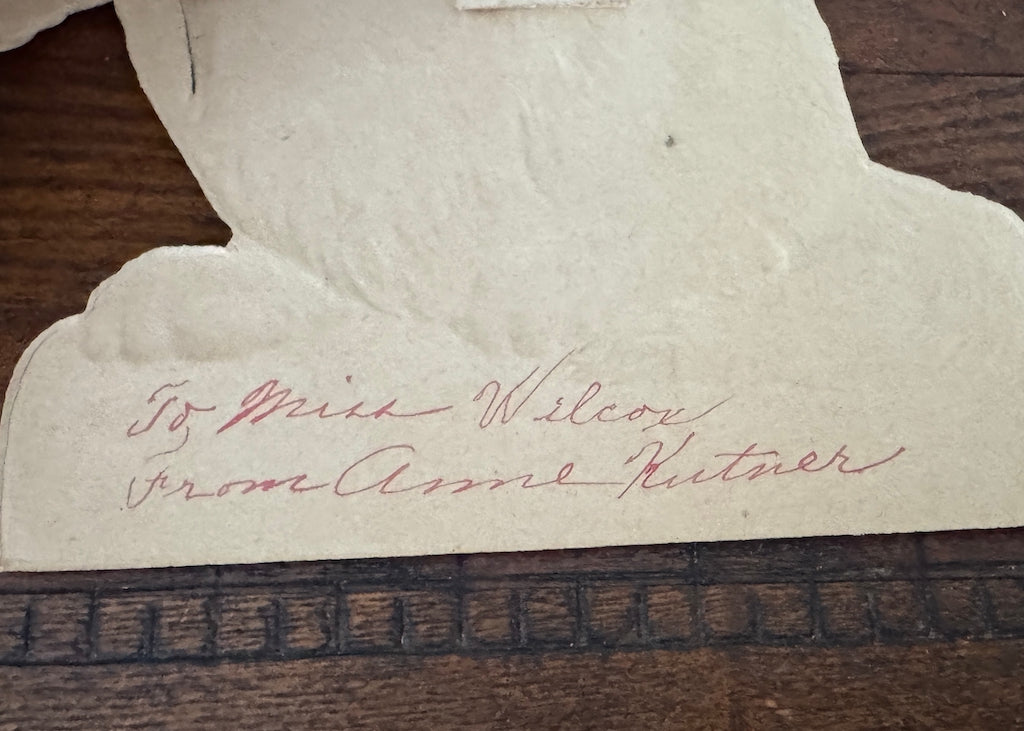 To Miss Wilcox
From Anne Kutner